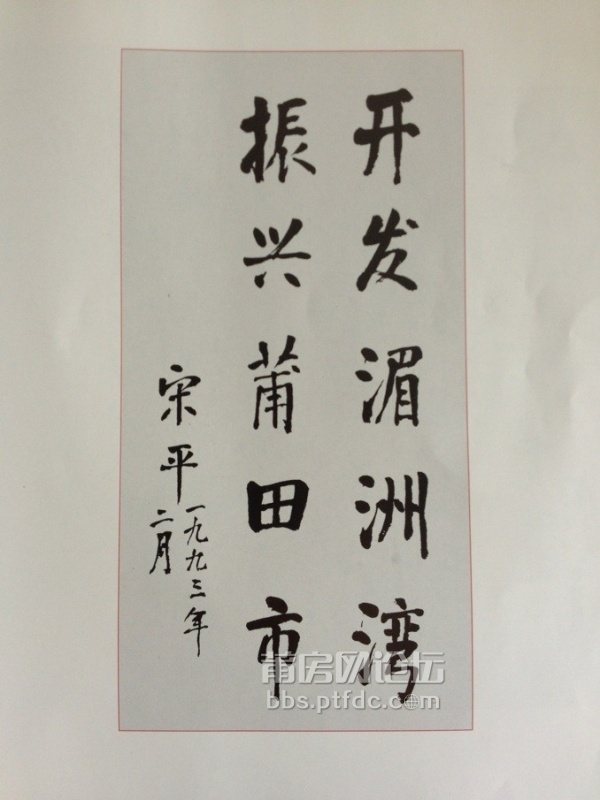 开发湄洲湾
振兴莆田市
宋平
一九九三年
二月
莆房网论坛
bbs.ptfdc.com